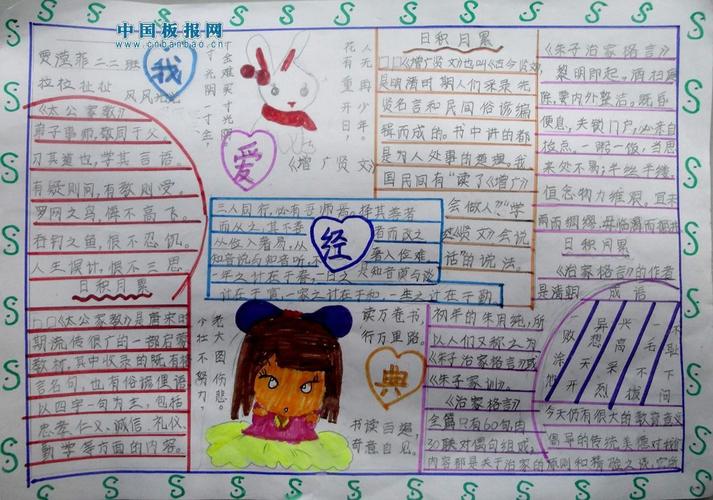 中国板报网
www.cnbanbao.cn
贾滢菲 二二班
拉拉扯扯
风风光光
我
爱
经
典
《太公家教》
弟子事师,敬同于父。
习其道也,学其言语。
有疑则问,有教则受。
罗网之鸟,悔不高飞。
吞钓之鱼,恨不忍饥。
人生误计,恨不三思
日积月累
□□《太公家教》是唐宋时
期流传很广的一部启蒙
教材,其中收录的既有格
言名句,也有俗谚俚语,
以四字一句为主,包括
忠孝、仁义、诚信、礼仪、
勤学等方面的内容。
一寸光阴一寸金,
寸金难买寸光阴
花有重开日,
人无再少年。
《增广贤文》
三人同行,必有吾师焉。择其善者
而从之,其不善者而改之
知音说与知音听,
一年之计在于春,一日之
计在于寅,一家之计在于和,一生之计在于勤
少壮不努力,
老大徒伤悲。
读万卷书,
行万里路。
书读百遍,
奇意自见。
日积月累
□□《增广贤文》也叫《古今贤文》
是明清时期人们采录先
贤名言和民间俗谚编
辑而成的。书中讲的都
是为人处事的道理。我
国民间有“读了《增广》
会做人”、“学
《贤文》会说
话”的说法。
《朱子治家格言》
黎明即起,洒扫庭
除,要内外整洁。既昏
便息,关锁门户,必亲自
检点。一粥一饭,当思
来处不易;半丝半缕,
恒念物力维艰。宜未
雨而绸缪,毋临渴而掘井
日积月累
《治家格言》的作者
是清朝
初年的朱用纯,所
以人们又称之为
《朱子治家格言》或
《朱子家训》。
《治家格言》
全篇只有60句由
30联对偶句组成,
内容都是关于治家的原则和精髓之说,它所
倡导的传统美德对我们
今天仍有很大的教育意义
成语
一败涂地
异想天开
兴高采烈
一毛不拔
不耻下问